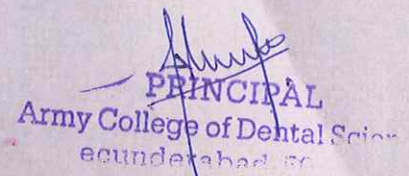 PRINCIPAL
Army College of Dental Scien
ecunderabad